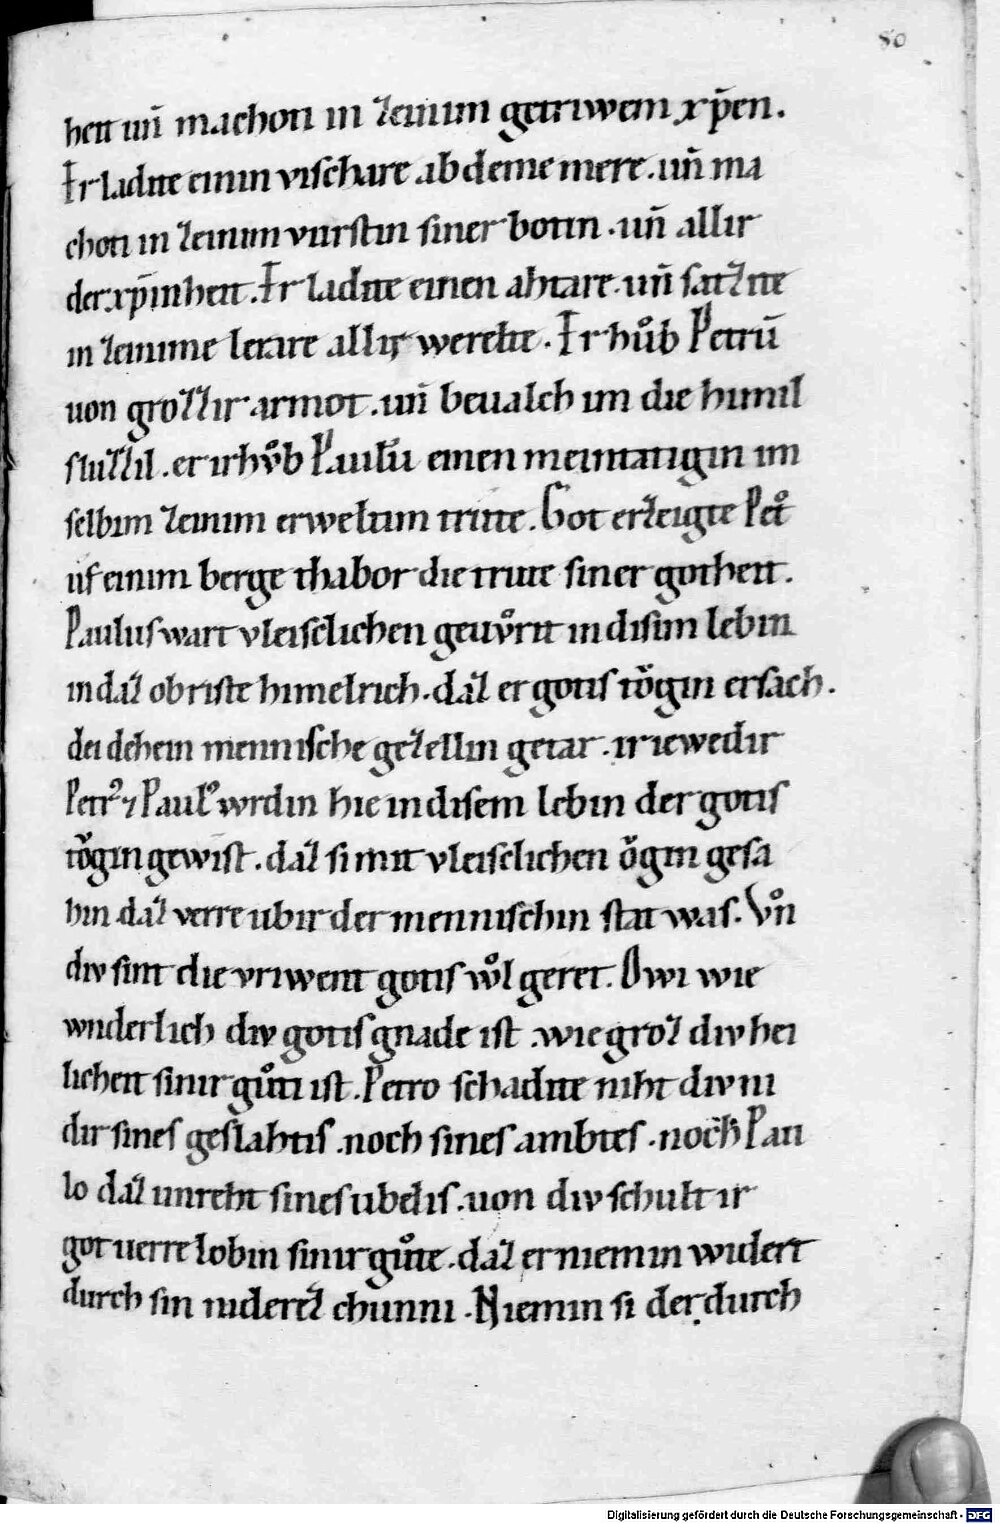 80
heit uñ machoti in zeinim getriwem xp̄en.
Er ladite einin vischare ab deme mere. uñ ma
choti in zeinim vurstin siner botin. uñ allir
der xp̄inheit. Er ladite einen ahtare. uñ satzite
in zeinime lerare allir werelte. Er hůb Petrū
uon grozzir armot. uñ beualch im die himil
sluzzil. er irhv̊b Paulū einen meintatigin im
selbim zeinim erweltim tritte. Got erzeigte Pet᷒
uf einim berge thabor die trute siner gotheit.
Paulus wart vleisclichen geuv̊rit in disim lebin
in daz obriste himelrich. daz er gotis tǒgin ersach.
dei dehein mennische gezellin getar. ir iewedir
Petr᷒ ⁊ Paul᷒ wrdin hie in disem lebin der gotis
tǒgin gewist. daz si mit vleisclichen ǒgin gesa
hin daz verre ubir der mennischin stat was. Vv̊n
div sint die vriwent gotis wͦl geret. Owi wie
wnderlich div gotis gnade ist. wie groz div hei
licheit sinir gůti ist. Petro schadite niht div ni
dir sines geslahtis. noch sines ambtes. noch Pau
lo daz unreht sines ubelis. uon div schult ir
got uerre lobin sinir gůte. daz er niemin widert
durch sin niderez chunni. Niemin si der durch
Digitalisierung gefördert durch die Deutsche Forschungsgemeinschaft - DFG